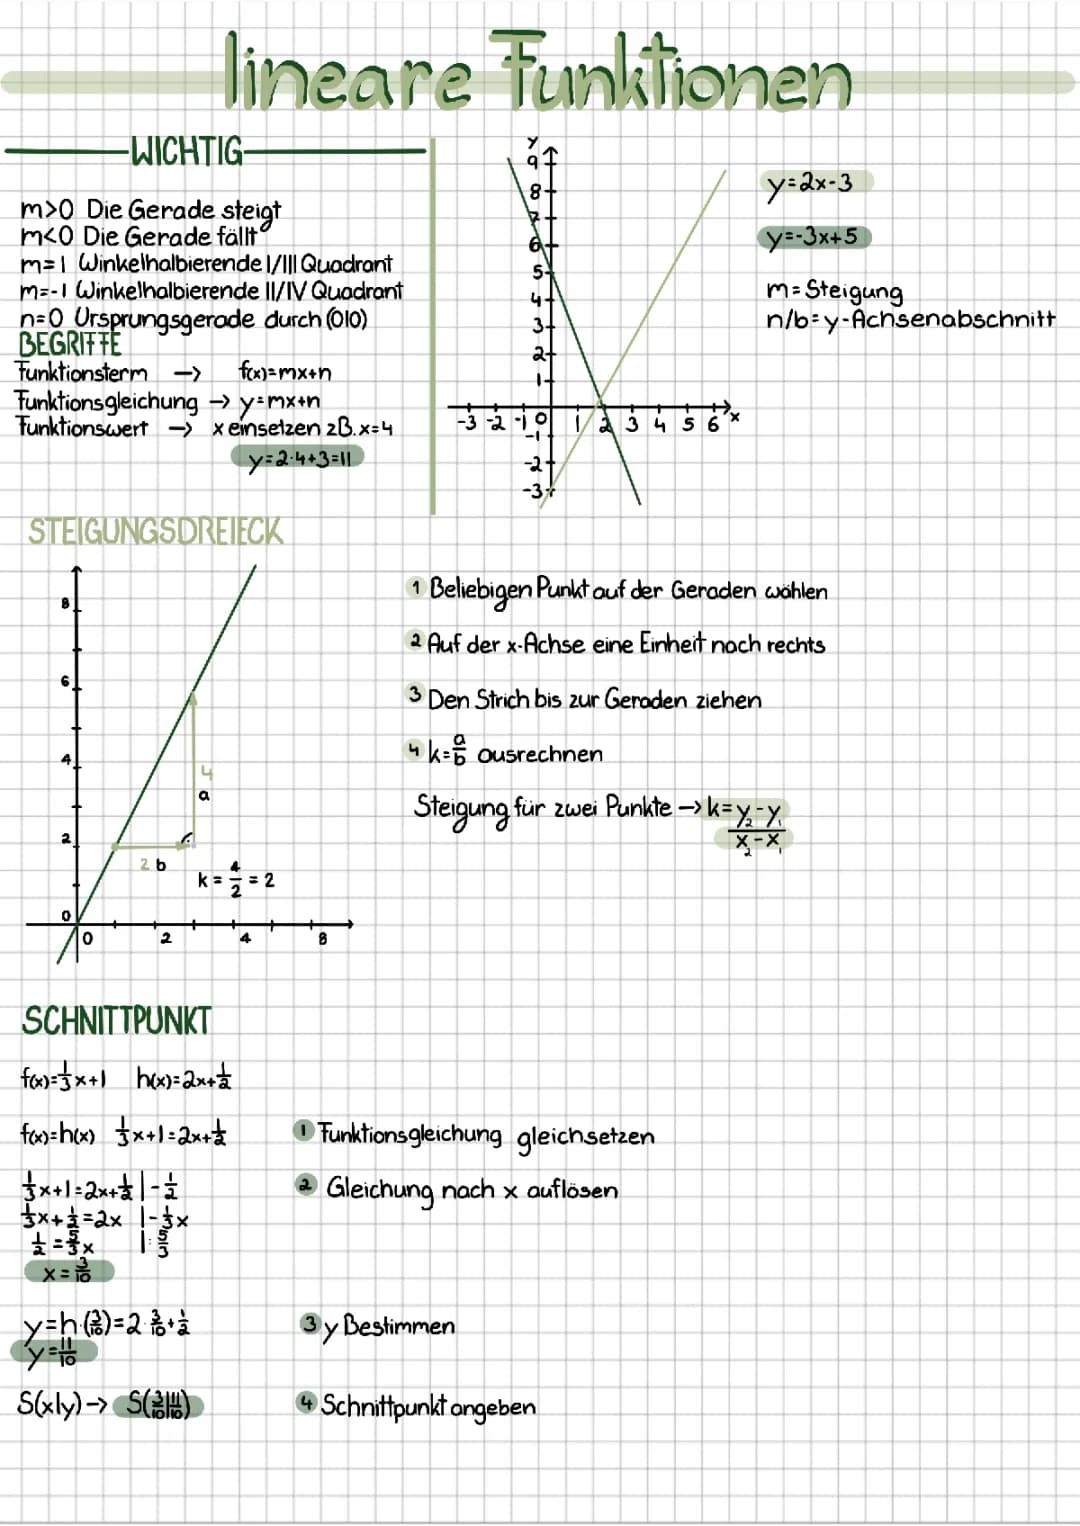 lineare Funktionen
WICHTIG
m>0 Die Gerade steigt
m<0 Die Gerade fällt
m=1 Winkelhalbierende I/III Quadrant
m=-1 Winkelhalbierende II/IV Quadrant
n=0 Ursprungsgerade durch (0|0)
BEGRIFFE
Funktionsterm → f(x)=mx+n
Funktionsgleichung → y=mx+n
Funktionswert → x einsetzen zB. x=4
y=2·4+3=11
y
9
8
7
6
5
4
3
2
1
-3 -2 -1 0 1 2 3 4 5 6 x
-1
-2
-3
y=2x-3
y=-3x+5
m=Steigung
n/b=y-Achsenabschnitt
STEIGUNGSDREIECK
8
6
4
2
0
4
a
2 b
k=4/2=2
0 2 4 8
1 Beliebigen Punkt auf der Geraden wählen
2 Auf der x-Achse eine Einheit nach rechts
3 Den Strich bis zur Geraden ziehen
4 k=a/b ausrechnen
Steigung für zwei Punkte → k=y₂-y₁/x₂-x₁
SCHNITTPUNKT
f(x)=1/3x+1 h(x)=2x+1/2
f(x)=h(x) 1/3x+1=2x+1/2
1 Funktionsgleichung gleichsetzen
1/3x+1=2x+1/2 |-1/2
2 Gleichung nach x auflösen
1/3x+1/2=2x |-1/3x
1/2=5/3x |:5/3
x=3/10
y=h·(3/10)=2·3/10+1/2
3 y Bestimmen
y=11/10
S(x|y)→ S(3/10|11/10)
4 Schnittpunkt angeben